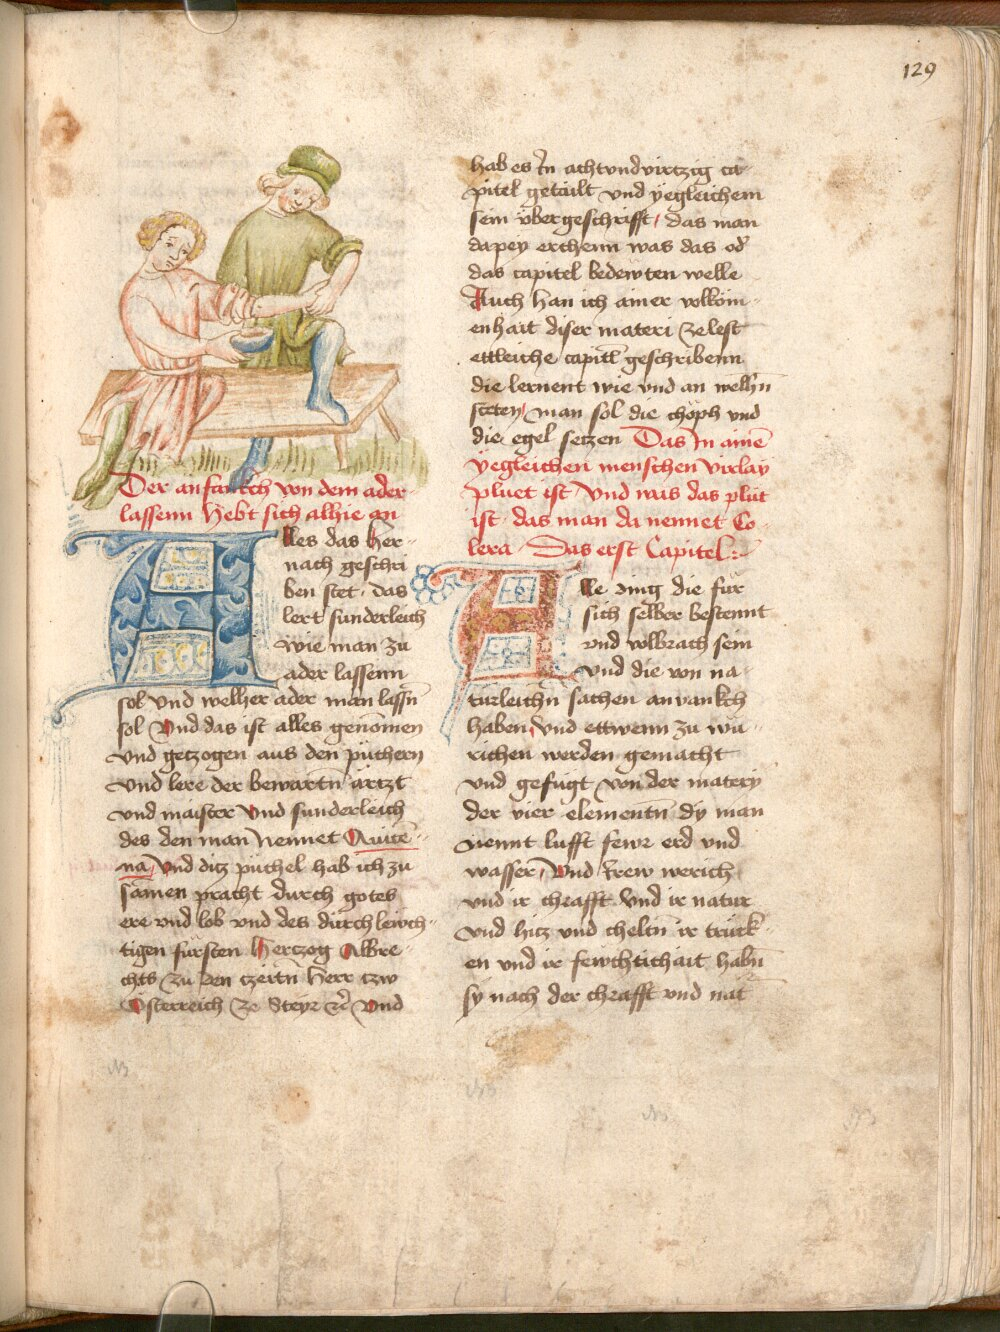 129
Der anfankch von dem ader
lassenn Hebt sich alhie an
Alles das her-
nach geschri
ben stet · das
lert sunderleich
wie man zu
ader lassenn
sol vnd welher ader man lassn̄
sol Vnd das ist alles genomen
vnd getzogen aus den püchern
vnd lere der bewartn̄ ärtzt
vnd maister Vnd sunderleich
des den man Nennet Auice-
na, Vnd ditz püchel hab ich zu
samen pracht durch gotes
ere vnd lob vnd des durchleich-
tigen fürsten Hertzog Albre-
chts zu den czeitn̄ herr czw
Osterreich ze Steyr etc̄ Vnd
hab es In achtvndvirtzig ca
pitel getailt vnd yegleichem
sein vbergeschrifft, das man
dapey erchenn was das od̄
das capitel bedewten welle
Auch han ich ainer volkom-
enhait diser materi zelest
ettleiche capitl̄ geschribenn
die lernent wie vnd an welhn̄
steten, man sol die chöph vnd
die egel setzen Das In ainē
yegleichen menschen virlay
pluet ist Vnd was das plut
ist · das man da nennet Co-
lera · Das erst Capitel :·
Alle ding die für
sich selber bestennt
vnd volbracht sein
vnd die von na
türleichn̄ sachen anvankch
haben, Vnd ettwenn zu wu-
richen werden gemacht
vnd gefugt von der matery
der vier elementn̄ dy man
nennt lufft fewr erd vnd
wasser, Vnd Irew werich
vnd ir chrafft Vnd ir natur
vnd hitz vnd cheltn̄ ir truck-
en vnd ir fewchtichait habn̄
sy nach der chrafft vnd nat̄